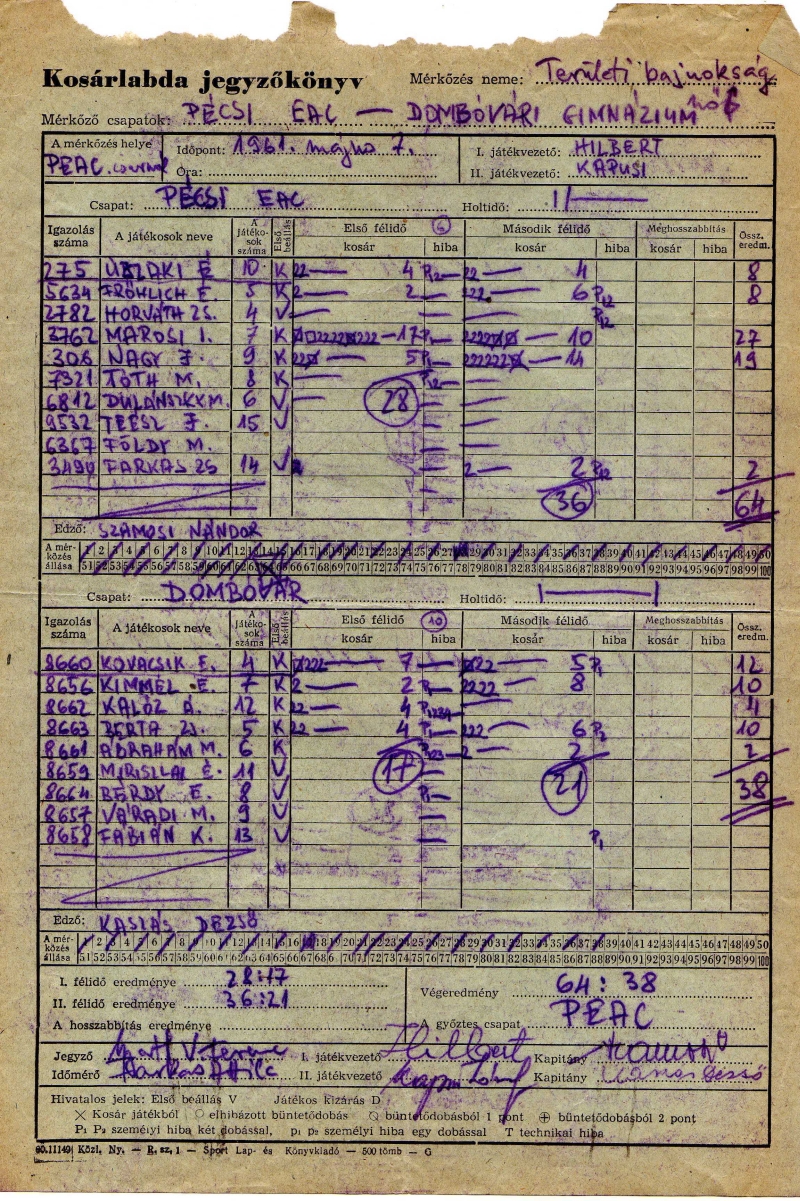 Kosárlabda jegyzőkönyv Mérkőzés neme: Területi bajnokság
Mérkőző csapatok: PÉCSI EAC — DOMBÓVÁRI GIMNÁZIUM női
A mérkőzés helye Időpont: 1961. május 7. I. játékvezető: HILBERT
PEAC Óra: II. játékvezető: KAPUSI
Csapat: PÉCSI EAC Holtidő:
Igazolás száma A játékosok neve A játékosok száma Első beállás Első félidő 6 Második félidő Meghosszabbítás Össz. eredm.
kosár hiba kosár hiba kosár hiba
275 UZLAKI É 10 K 22 — 4 P12 22 — 4 8
5634 FRÖHLICH E. 5 K 2 — 2 — 222 — 6 P12 8
2782 HORVÁTH ZS. 4 V — — P12
3762 MAROSI I. 7 K — 17 P1 — 10 27
308 NAGY J. 9 K — 5 P1 — 14 19
7321 TÓTH M. 8 K — P12 —
6812 M. 6 V — 28 — —
9532 TEESZ J. 15 V — —
6367 FÖLDY M. —
3490 FARKAS ZS 14 V 2 2 — 2 P12 2
36 64
Edző: SZAMOSI NÁNDOR
A mérkőzés állása 1 2 3 4 5 6 7 8 9 10 11 12 13 14 15 16 17 18 19 20 21 22 23 24 25 26 27 28 29 30 31 32 33 34 35 36 37 38 39 40 41 42 43 44 45 46 47 48 49 50
51 52 53 54 55 56 57 58 59 60 61 62 63 64 65 66 67 68 69 70 71 72 73 74 75 76 77 78 79 80 81 82 83 84 85 86 87 88 89 90 91 92 93 94 95 96 97 98 99 100
Csapat: DOMBÓVÁR Holtidő:
Igazolás száma A játékosok neve A játékosok száma Első beállás Első félidő 10 Második félidő Meghosszabbítás Össz. eredm.
kosár hiba kosár hiba kosár hiba
8660 KOVACSIK E. 4 K — 7 — — 5 P1 12
8656 KIMMEL E. 7 K 2 — 2 P1 2222 — 8 10
8662 KALÓZ A. 12 K 22 — 4 P1234 4
8663 BERTA ZS. 5 K 22 — 4 P1 222 — 6 P2 10
8661 ÁBRAHÁM M. 6 K P123 2 — 2 2
8659 É. 11 V 17 — 21
8664 BERDY E. 8 V P1 38
8657 VÁRADI M. 9 V —
8658 FÁBIÁN K. 13 V P1
Edző: KASZÁS DEZSŐ
A mérkőzés állása 1 2 3 4 5 6 7 8 9 10 11 12 13 14 15 16 17 18 19 20 21 22 23 24 25 26 27 28 29 30 31 32 33 34 35 36 37 38 39 40 41 42 43 44 45 46 47 48 49 50
51 52 53 54 55 56 57 58 59 60 61 62 63 64 65 66 67 68 69 70 71 72 73 74 75 76 77 78 79 80 81 82 83 84 85 86 87 88 89 90 91 92 93 94 95 96 97 98 99 100
I. félidő eredménye 28:17 Végeredmény 64:38
II. félidő eredménye 36:21
A hosszabbítás eredménye A győztes csapat PEAC
Jegyző I. játékvezető Hilbert Kapitány
Időmérő Farkas Attila II. játékvezető Kapitány
Hivatalos jelek: Első beállás V Játékos kizárás D
× Kosár játékból ○ elhibázott büntetődobás büntetődobásból 1 pont ⊕ büntetődobásból 2 pont
P₁ P₂ személyi hiba két dobással, p₁ p₂ személyi hiba egy dobással T technikai hiba
60.11149 Közl. Ny. — R. sz. 1 — Sport Lap- és Könyvkiadó — 500 tömb — G